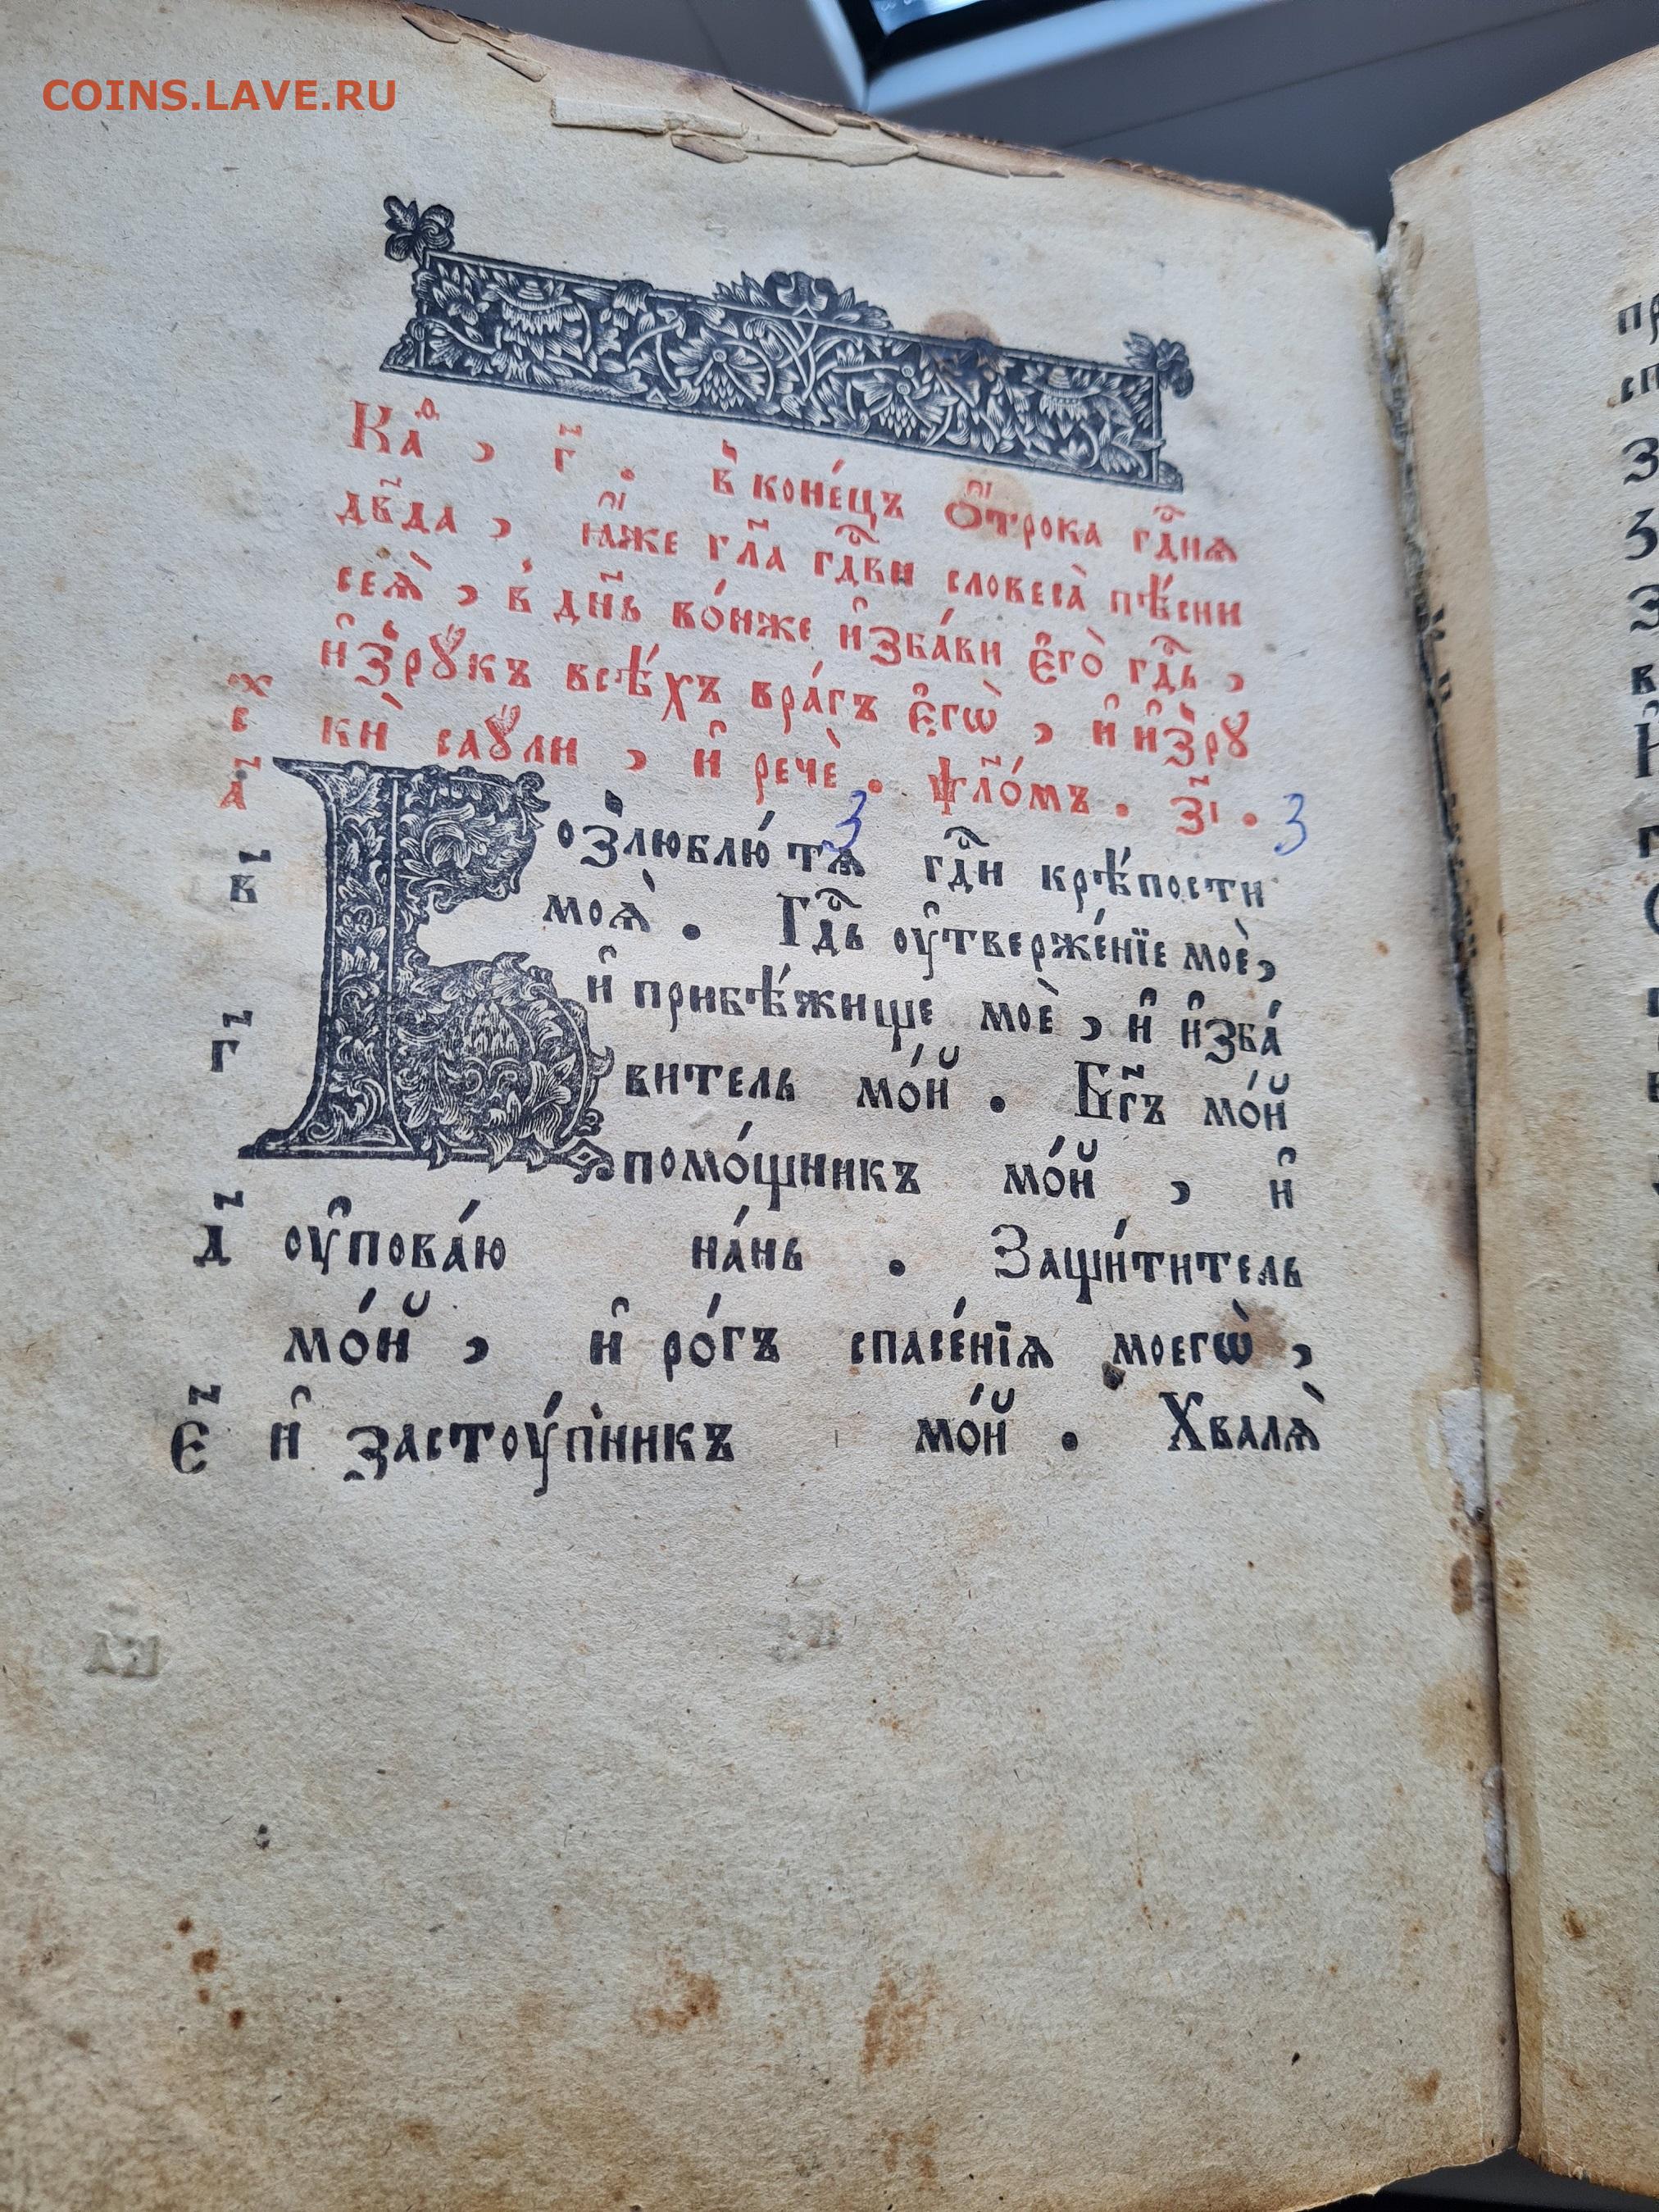 COINS.LAVE.RU
Каѳ҇ , г҃ . в̾ коне́цъ ѻ҆́трока гдⷭ҇нѧ
дв҃да , ꙗ҆́же гл҃а гдⷭ҇ви словеса̀ пѣ́сни
сеѧ̀ , в̾ дн҃ь во́ньже и҆зба́ви є҆го̀ гдⷭ҇ь ,
и҆з̾рꙋ́къ всѣ́хъ вра́гъ є҆гѡ̀ , и҆ и҆з̾рꙋ
кѝ саꙋ́ли , и҆ речѐ . ѱл҃о́мъ . з҃і .
3
3
Воз̾люблю́ тѧ гдⷭ҇и крѣ́пости
моѧ̀ . Гдⷭ҇ь оу҆тверже́нїе моѐ,
и҆ прибѣ́жище моѐ , и҆ и҆зба́
витель мо́й . Бг҃ъ мо́й
помо́щникъ мо́й , и҆
оу҆пова́ю на́нь . Защи́титель
мо́й , и҆ ро́гъ спасе́нїѧ моегѡ̀ ,
и҆ застоу́п̾никъ мо́й . Хвалѧ̀
а҃
в҃
г҃
д҃
є҃